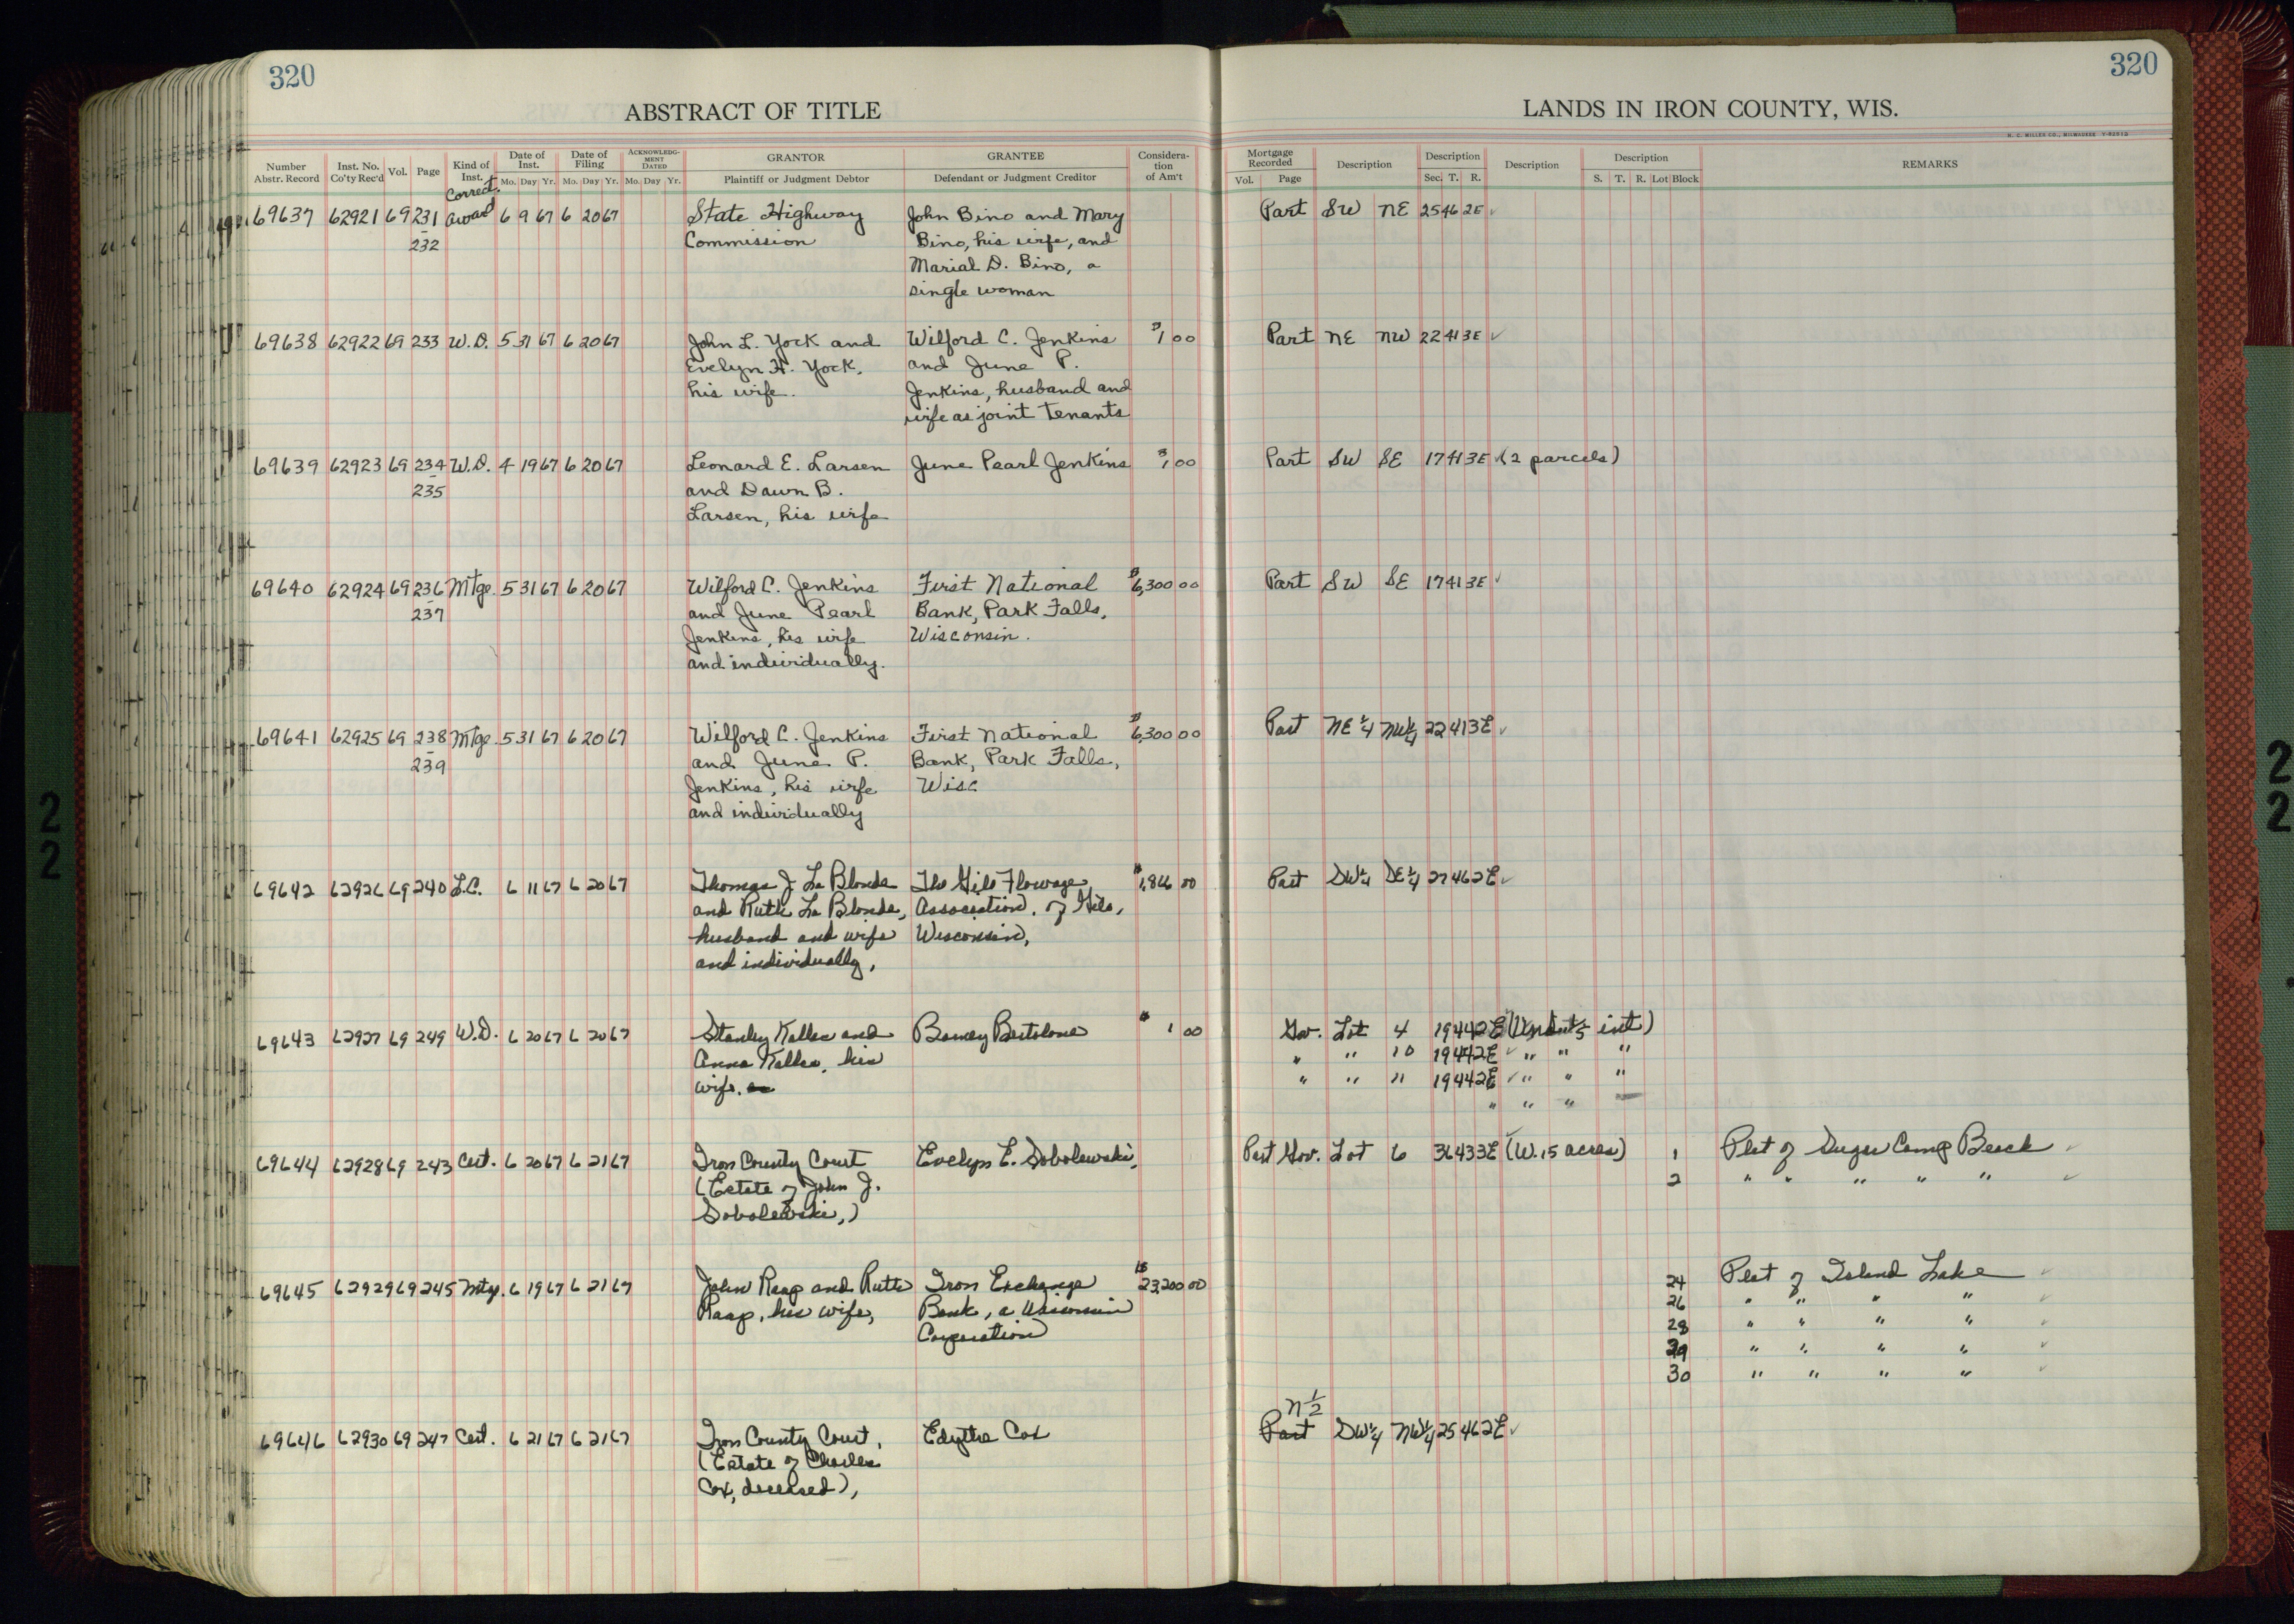 320
320
ABSTRACT OF TITLE
LANDS IN IRON COUNTY, WIS.
H. C. MILLER CO., MILWAUKEE
Number Abstr. Record Inst. No. Co'ty Rec'd Vol. Page Kind of Inst. Date of Inst. Mo. Day Yr. Date of Filing Mo. Day Yr. ACKNOWLEDGMENT DATED Mo. Day Yr. GRANTOR Plaintiff or Judgment Debtor GRANTEE Defendant or Judgment Creditor Consideration of Am't Mortgage Recorded Vol. Page Description Description Sec. T. R. Description Description S. T. R. Lot Block REMARKS
Correct.
69637 62921 69 231 award 6 9 67 6 20 67 State Highway John Bino and Mary Part SW NE 25 46 2E ✓
- 232 Commission Bino, his wife, and
Marial D. Bino, a
single woman
69638 62922 69 233 W.D. 5 31 67 6 20 67 John L. York and Wilford C. Jenkins $1 00 Part NE NW 22 41 3E ✓
Evelyn H. York, and June P.
his wife. Jenkins, husband and
wife as joint tenants
69639 62923 69 234 W.D. 4 19 67 6 20 67 Leonard E. Larsen June Pearl Jenkins $1 00 Part SW SE 17 41 3E ✓ (2 parcels)
- 235 and Dawn B.
Larsen, his wife
69640 62924 69 236 Mtge. 5 31 67 6 20 67 Wilford C. Jenkins First National $6,300 00 Part SW SE 17 41 3E ✓
- 237 and June Pearl Bank, Park Falls,
Jenkins, his wife Wisconsin.
and individually.
69641 62925 69 238 Mtge. 5 31 67 6 20 67 Wilford C. Jenkins First National $6,300 00 Part NE 1/4 NW 1/4 22 41 3E ✓
- 239 and June P. Bank, Park Falls,
Jenkins, his wife Wisc
and individually
69642 62926 69 240 L.C. 6 11 67 6 20 67 Thomas J. La Blonde The Gile Flowage $1,866 00 Part SW 1/4 SE 1/4 27 46 2E ✓
and Ruth La Blonde, Association, of Gile,
husband and wife Wisconsin,
and individually,
69643 62927 69 249 W.D. 6 20 67 6 20 67 Stanley Kallas and Barney Bertolone $ 1 00 Gov. Lot 4 19 44 2E int)
Anna Kallas, his " " 10 19 44 2E ✓ " " "
wife. " " 11 19 44 2E ✓ " " "
" " "
69644 62928 69 243 Cert. 6 20 67 6 21 67 Iron County Court Evelyn E. Sobolewski, Part Gov. Lot 6 36 43 3E ✓ (W. 15 acres) 1 Plat of Sugar Camp Beach ✓
(Estate of John J. 2 " " " " " ✓
Sobolewski,)
69645 62929 69 245 Mtg. 6 19 67 6 21 67 John Raap and Ruth Iron Exchange $23,200 00 24 Plat of Island Lake ✓
Raap, his wife, Bank, a Wisconsin 26 " " " " ✓
Corporation 28 " " " " ✓
29 " " " " ✓
30 " " " " ✓
N 1/2
69646 62930 69 247 Cert. 6 21 67 6 21 67 Iron County Court, Edythe Cox Part SW 1/4 NW 1/4 25 46 2E ✓
(Estate of Charles
Cox, deceased),
2
2
2
2